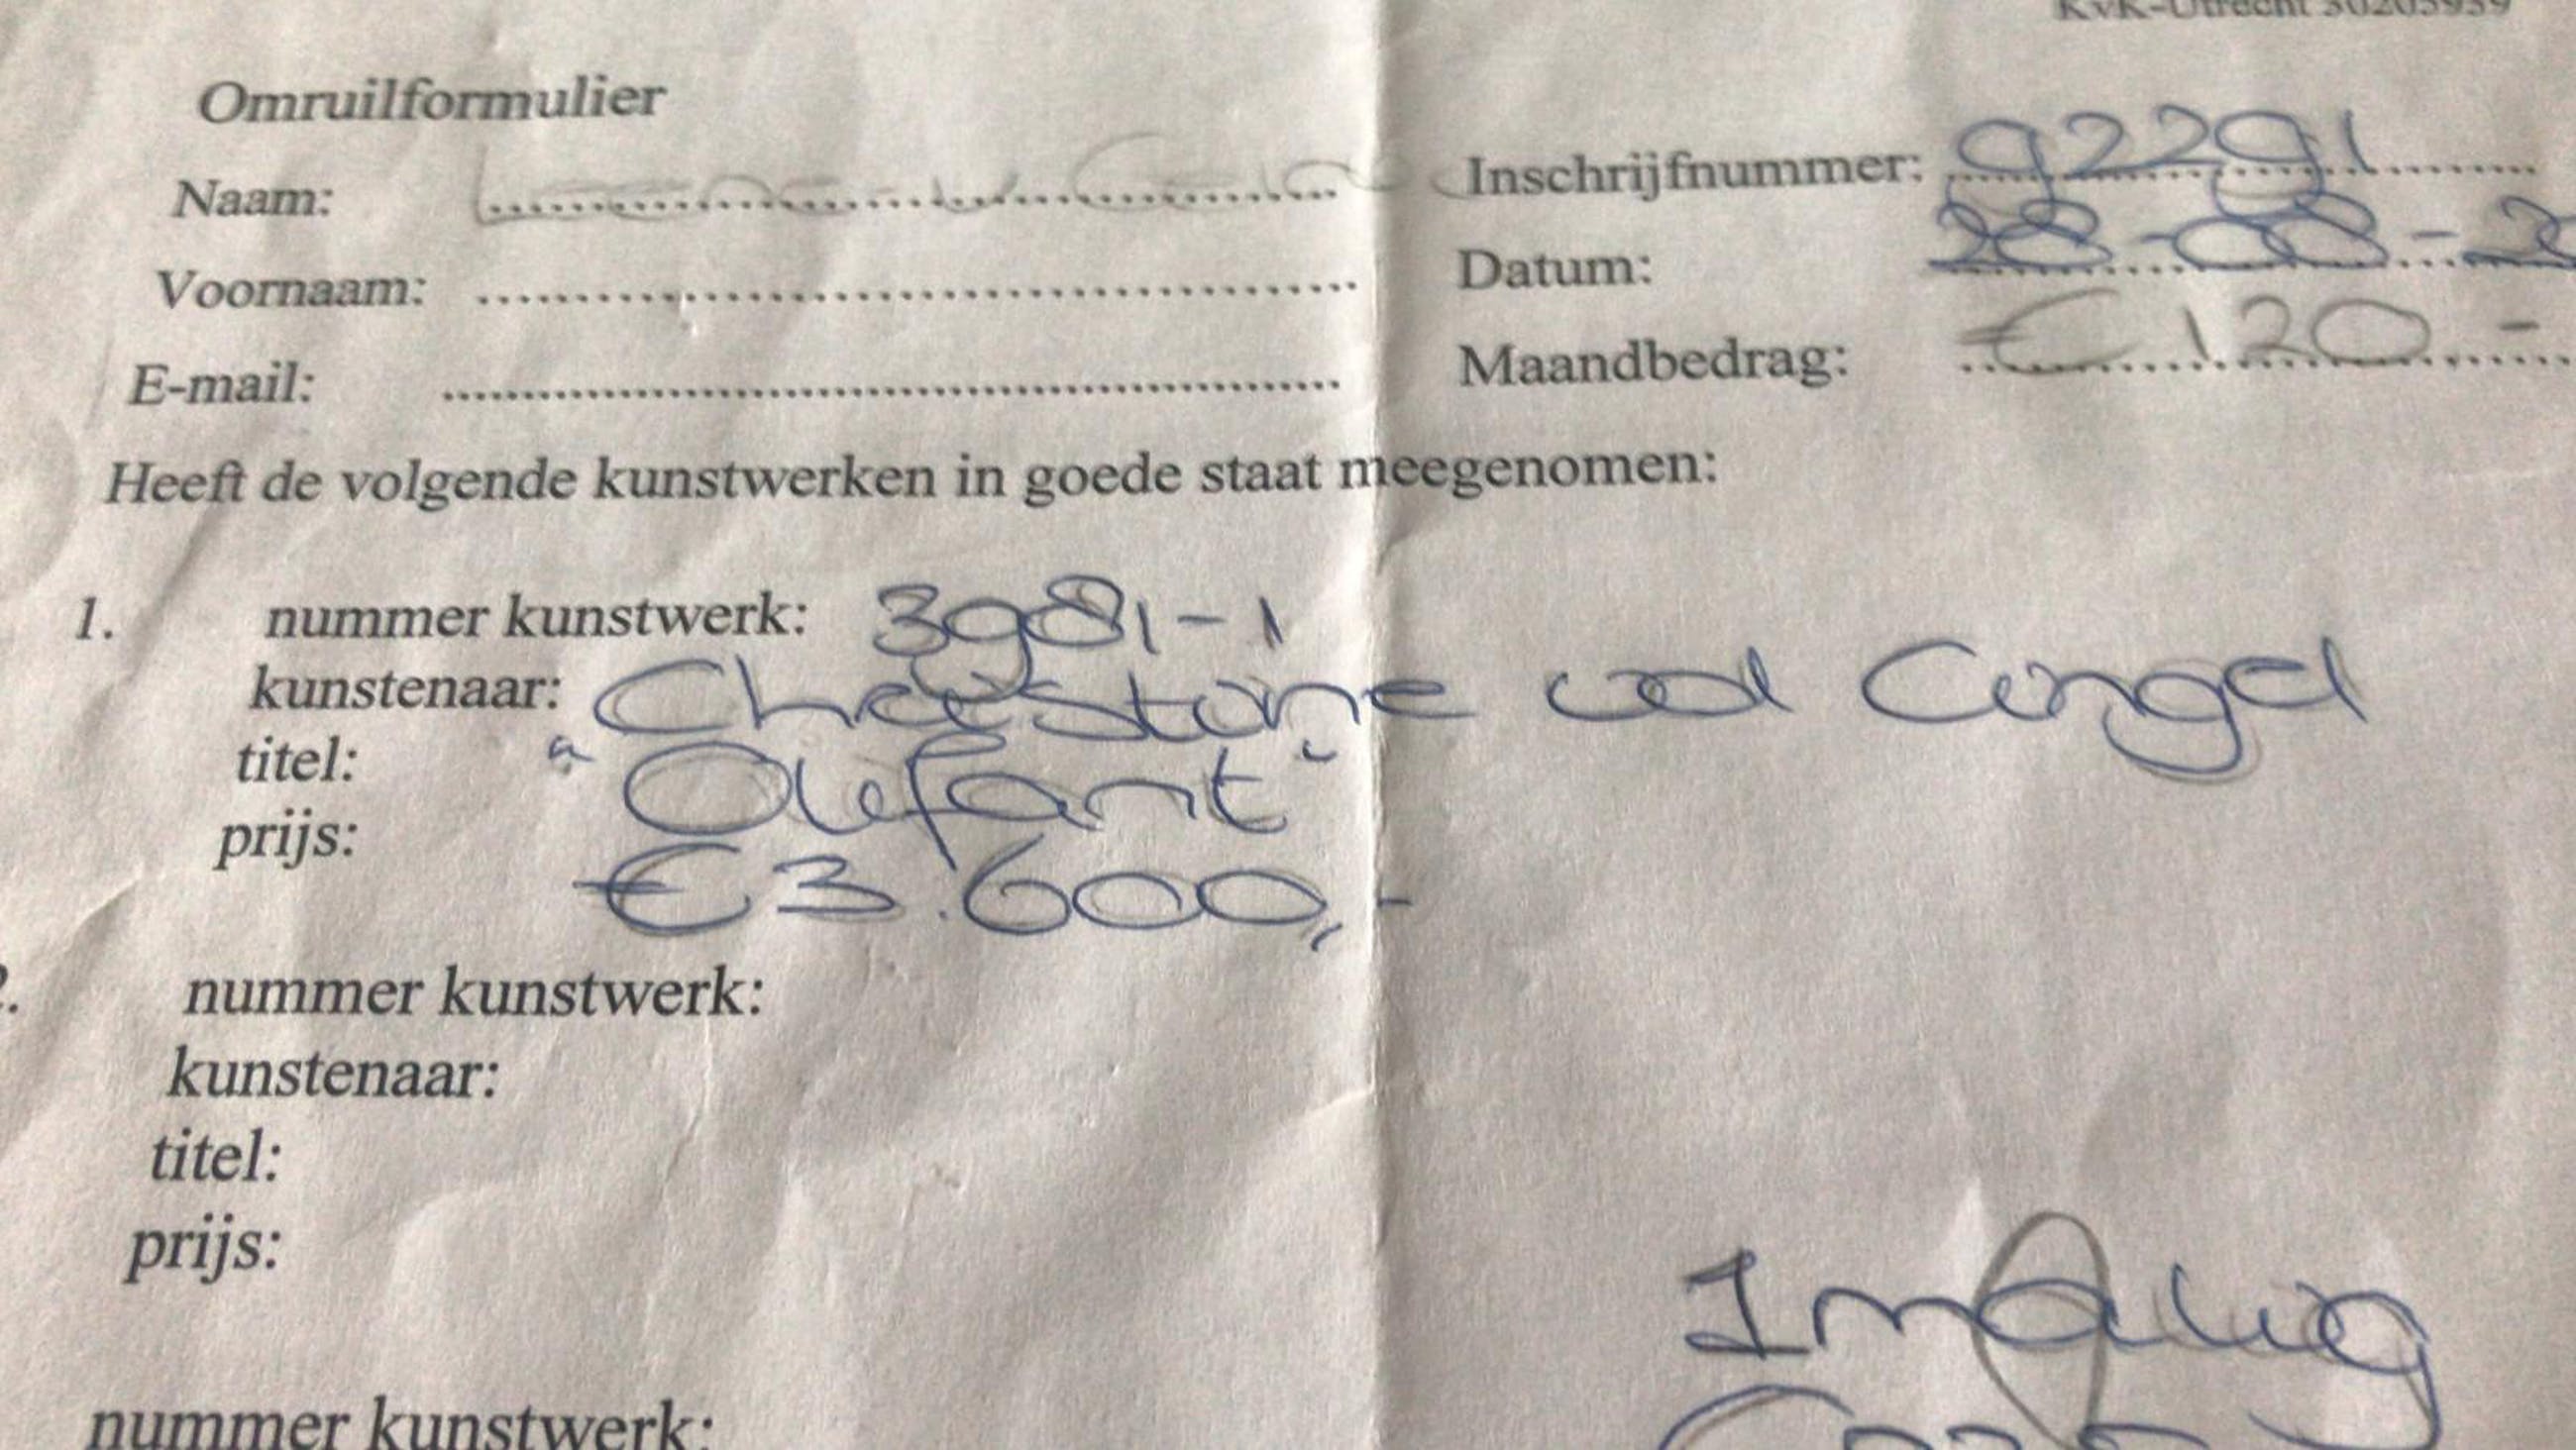 KvK-Utrecht 30205939
Omruilformulier
Naam:
Inschrijfnummer: 92291
Voornaam:
Datum: 28-08-2
E-mail:
Maandbedrag: € 120 -
Heeft de volgende kunstwerken in goede staat meegenomen:
1. nummer kunstwerk: 3981-1
kunstenaar: Cheestone
titel: "Olefant"
prijs: €3.600,-
nummer kunstwerk:
kunstenaar:
titel:
prijs:
nummer kunstwerk: